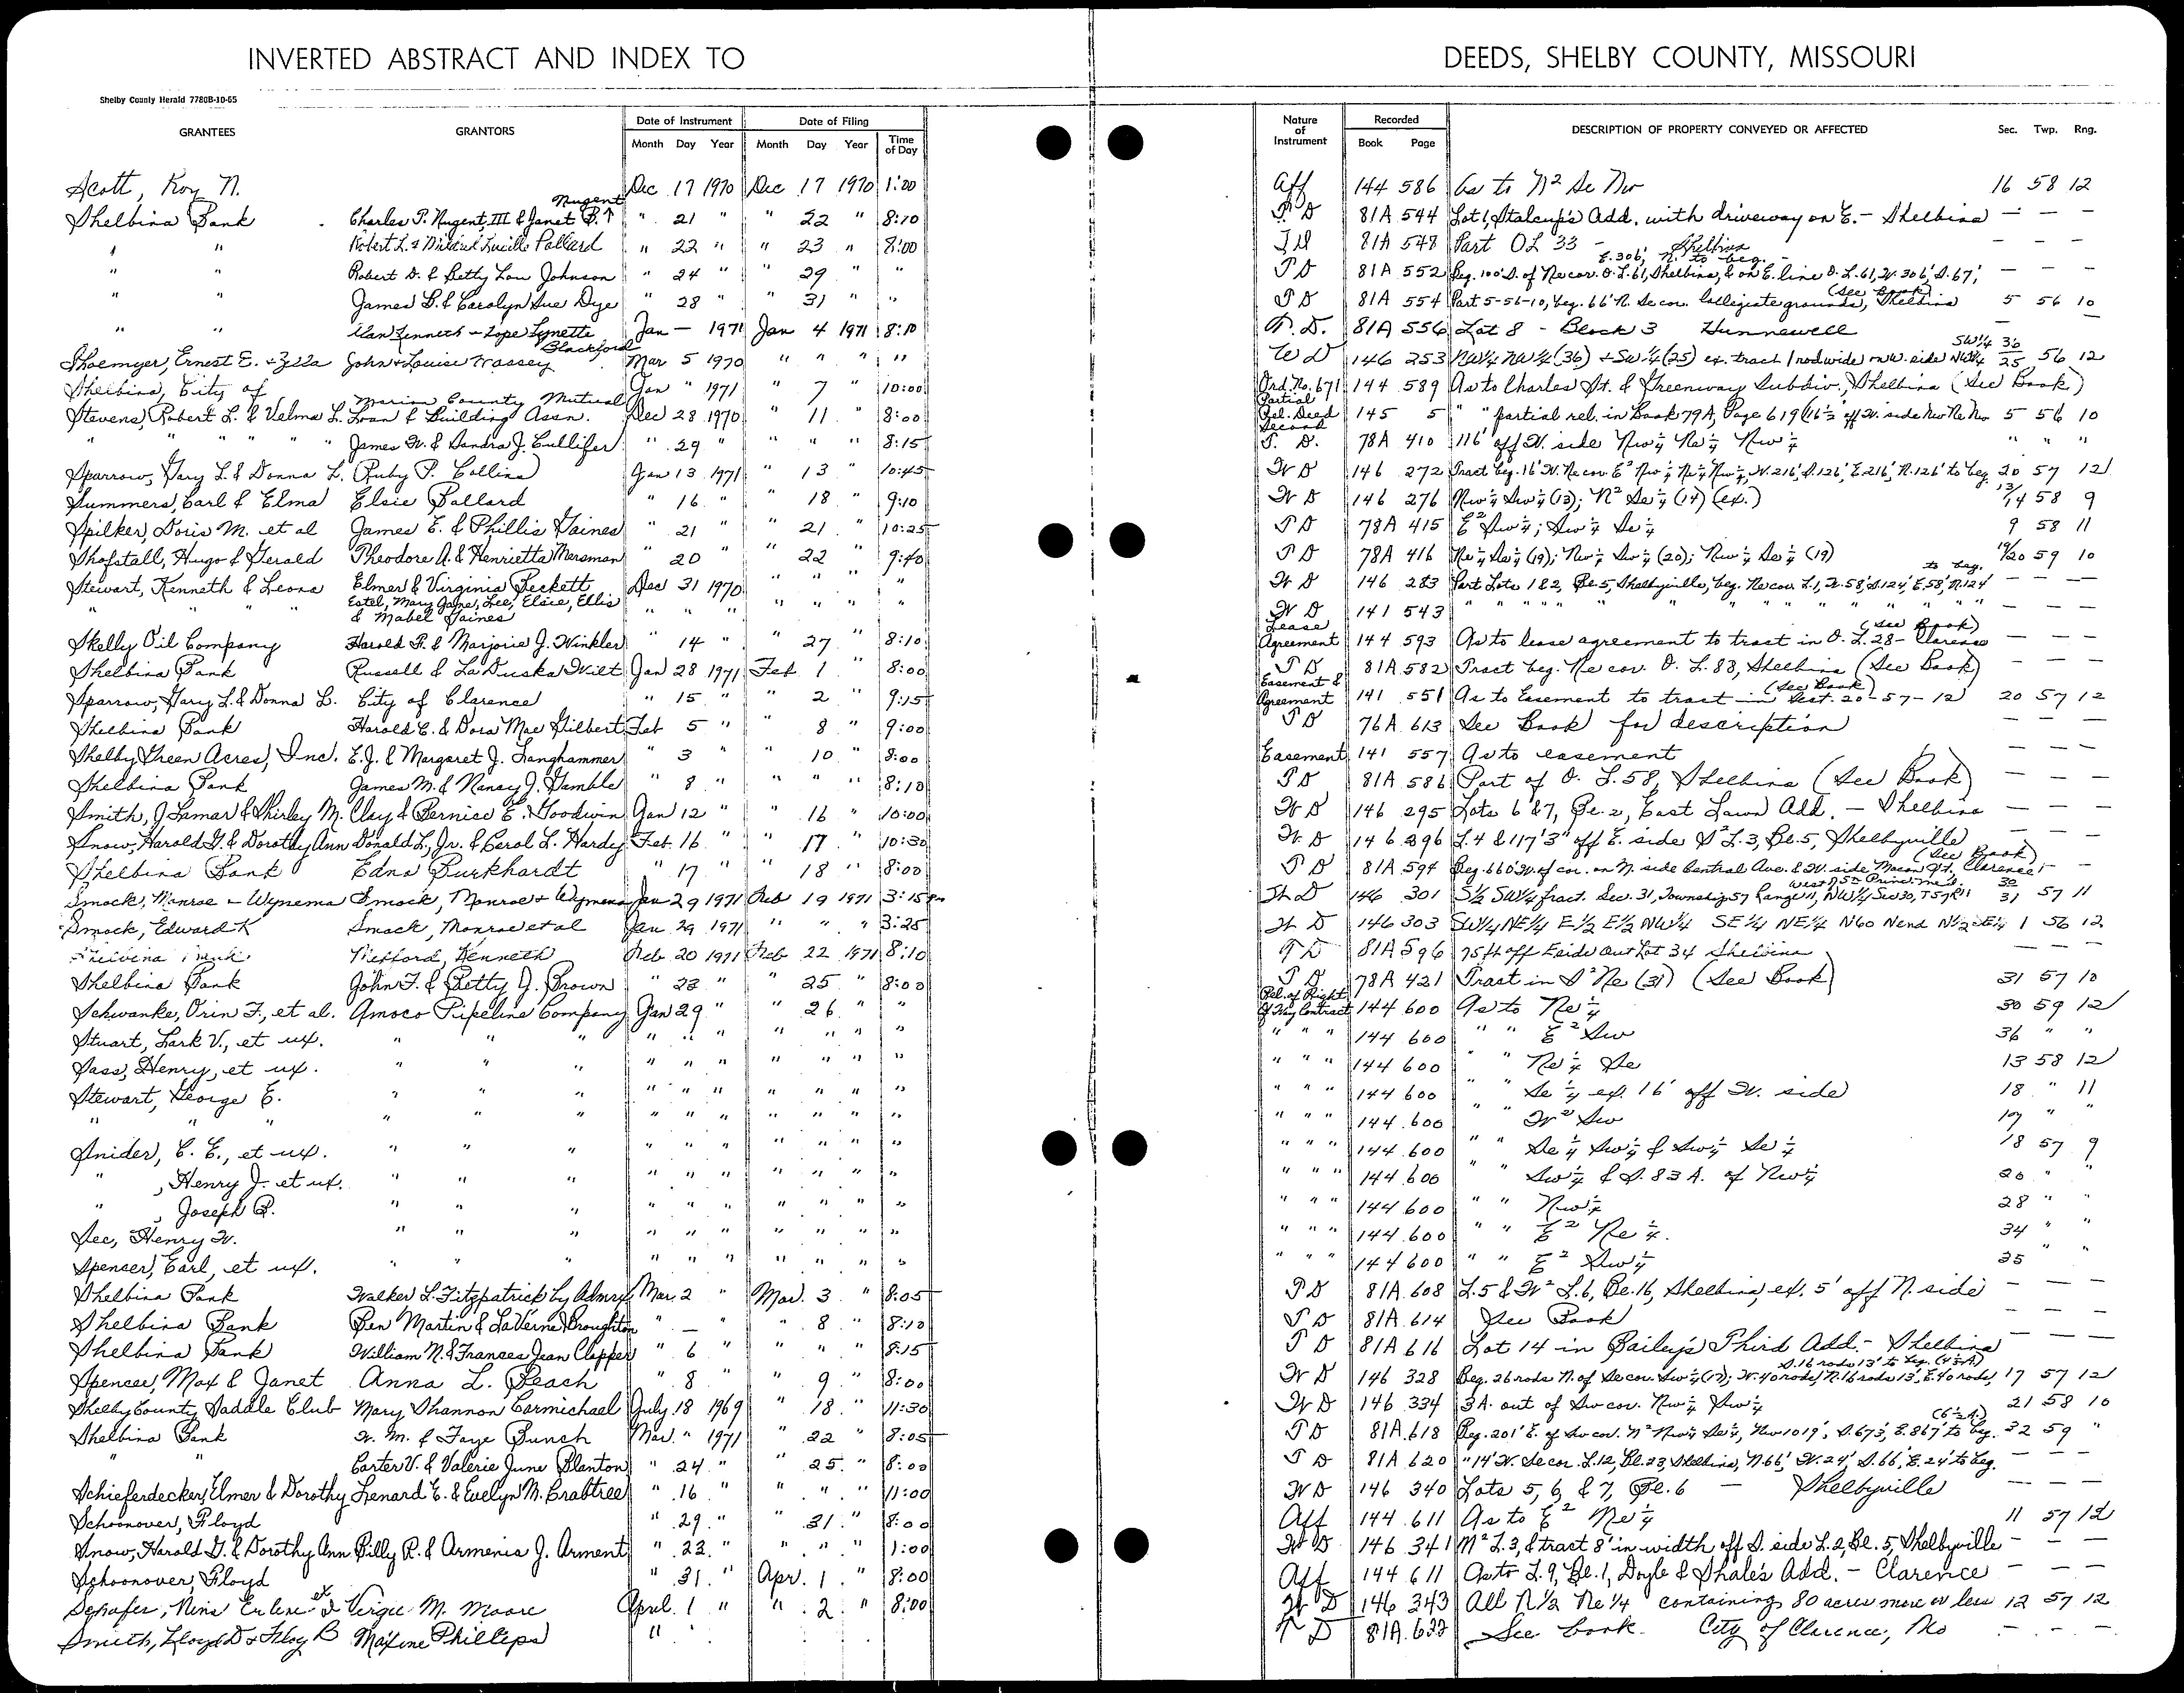 INVERTED ABSTRACT AND INDEX TO DEEDS, SHELBY COUNTY, MISSOURI
Shelby County Herald 7780B-10-65
GRANTEES GRANTORS Date of Instrument Date of Filing Nature of Instrument Recorded DESCRIPTION OF PROPERTY CONVEYED OR AFFECTED Sec. Twp. Rng.
Month Day Year Month Day Year Time of Day Book Page
Scott, Roy N. Dec 17 1970 Dec 17 1970 1:00 Aff 144 586 As to N2 Se Nw 16 58 12
Shelbina Bank Charles P. Nugent, III & Janet B. Nugent " 21 " " 22 " 8:10 T D 81A 544 Lot 1, Stalcup's Add. with driveway on E. - Shelbina - - -
" " Robert L. & Mildred Lucille Pollard " 22 " " 23 " 8:00 T D 81A 548 Part OL 33 - Shelbina - - -
" " Robert D. & Betty Lou Johnson " 24 " " 29 " " T D 81A 552 Beg. 100' S. of Ne cor. O.L. 61, Shelbina, & on E. line O.L. 61, W. 306', S. 67', E. 306', N. to beg. - - -
" " James B. & Carolyn Sue Dye " 28 " " 31 " " T D 81A 554 Part 5-56-10, beg. 66' N. Se cor. Collegiate grounds, Shelbina (See Book) 5 56 10
" " Alan Kenneth - Lynette Blackford Jan - 1971 Jan 4 1971 8:10 T. D. 81A 556 Lot 8 - Block 3 Hunnewell -
Shoemyer, Ernest E. + Zella John + Louise Massey Mar 5 1970 " " " " W D 146 253 NW1/4 NW1/4 (36) + SW1/4 (25) ex. tract 1 rod wide on W. side NW1/4 SW1/4 36 25 56 12
Shelbina, City of Jan " 1971 " 7 " 10:00 Ord. No. 671 144 589 As to Charles St. & Greenway Subdiv., Shelbina (See Book)
Stevens, Robert L. & Velma L. Marion County Mutual Loan & Building Assn. Dec 28 1970 " 11 " 8:00 Partial Rel. Deed 145 5 " " partial rel. in Book 79A, Page 619 (16 1/2' off W. side Nw Ne Nw 5 56 10
" " " " " James W. & Sandra J. Gullifer " 29 " " " " 8:15 Second T. D. 78A 410 116' off W. side Nw 1/4 Ne 1/4 Nw 1/4 " " "
Sparrow, Gary L. & Donna L. Ruby P. Collins Jan 13 1971 " 13 " 10:45 W D 146 272 Tract beg. 16' W. Ne cor. E2 Nw 1/4 Ne 1/4 Nw 1/4, W. 216', S. 126', E. 216', N. 126' to beg. 20 57 12
Summers, Carl & Elma Elsie Ballard " 16 " " 18 " 9:10 W D 146 276 Nw 1/4 Sw 1/4 (13); N2 Se 1/4 (14) (ex.) 13/14 58 9
Spilker, Doris M. et al James E. & Phillis Gaines " 21 " " 21 " 10:25 T D 78A 415 E2 Sw 1/4; Sw 1/4 Se 1/4 9 58 11
Shofstall, Hugo & Gerald Theodore A. & Henrietta Mersman " 20 " " 22 " 9:40 T D 78A 416 Ne 1/4 Se 1/4 (19); Nw 1/4 Sw 1/4 (20); Nw 1/4 Se 1/4 (19) 19/20 59 10
Stewart, Kenneth & Leona Elmer & Virginia Beckett Dec 31 1970 " " " " W D 146 283 Part Lots 1 & 2, Bl. 5, Shelbyville, beg. Ne cor. L. 1, W. 58', S. 124', E. 58', N. 124' to beg. - - -
" " " " Estel, Mary Jane, Lee, Elsie, Ellis & Mabel Gaines " " " " " " " W D 141 543 " " " " " " " " " - - -
Skelly Oil Company Harold F. & Marjorie J. Winkler " 14 " " 27 " 8:10 Lease Agreement 144 593 As to lease agreement to tract in O. L. 28 - Clarence (See Book) - - -
Shelbina Bank Russell & LaDuska Wilt Jan 28 1971 Feb 1 " 8:00 T D 81A 582 Tract beg. Ne cor. O. L. 88, Shelbina (See Book) - - -
Sparrow, Gary L. & Donna L. City of Clarence " 15 " " 2 " 9:15 Easement & Agreement 141 551 As to Easement to tract in Sect. 20-57-12 (See Book) 20 57 12
Shelbina Bank Harold E. & Dora Mae Gilbert Feb 5 " " 8 " 9:00 T D 76A 613 See Book for description - - -
Shelby Green Acres, Inc. E.J. & Margaret J. Langhammer " 3 " " 10 " 8:00 Easement 141 557 As to easement - - -
Shelbina Bank James M. & Nancy J. Gamble " 8 " " " " 8:10 T D 81A 586 Part of O. L. 58, Shelbina (See Book) - - -
Smith, J. Lamar & Shirley M. Clay & Bernice E. Goodwin Jan 12 " " 16 " 10:00 W D 146 295 Lots 6 & 7, Bl. 2, East Lawn Add. - Shelbina - - -
Snow, Harold G. & Dorothy Ann Donald L., Jr. & Carol L. Hardy Feb. 16 " " 17 " 10:30 W D 146 296 L. 4 & 117'3" off E. side S2 L. 3, Bl. 5, Shelbyville - - -
Shelbina Bank Edna Burkhardt " 17 " " 18 " 8:00 T D 81A 594 Beg. 660' W. of cor. on N. side Central Ave. & W. side Macon St. Clarence (See Book) - -
Smock, Monroe - Wynema Smock, Monroe + Wynema Jan 29 1971 Feb 19 1971 3:15 pm W D 146 301 S1/2 SW1/4 fract. Sec. 31, Township 57 Range 11, NW1/4 Sec 30, T57 R11 West of 5th Princ. Mer. 30 31 57 11
Smock, Edward K Smock, Monroe et al Jan. 29 1971 " " " 3:25 W D 146 303 SW1/4 NE1/4 E1/2 E1/2 NW1/4 SE1/4 NE1/4 N60 N end N1/2 SE1/4 1 56 12
Shelbina Bank Kenneth Feb 20 1971 Feb 22 1971 8:10 T D 81A 596 75 ft off E side Out Lot 34 Shelbina - - -
Shelbina Bank John F. & Betty J. Brown " 23 " " 25 " 8:00 T D 78A 421 Tract in S2 Ne (31) (See Book) 31 57 10
Schwanke, Orin F., et al. Amoco Pipeline Company Jan 29 " " 26 " " Rel. of Right Of Way Contract 144 600 As to Ne 1/4 30 59 12
Stuart, Lark V., et ux. " " " " " " " " " " " " " 144 600 " " E2 Sw 36 " "
Sass, Henry, et ux. " " " " " " " " " " " " " 144 600 " " Ne 1/4 Se 13 58 12
Stewart, George E. " " " " " " " " " " " " " 144 600 " " Se 1/4 ex. 16' off W. side 18 " 11
" " " " " " " " " " " " " " " " 144 600 " " W2 Sw 17 " "
Snider, C. E., et ux. " " " " " " " " " " " " " 144 600 " " Se 1/4 Sw 1/4 & Sw 1/4 Se 1/4 18 57 9
" , Henry J. et ux. " " " " " " " " " " " " " 144 600 " " Sw 1/4 & S. 83 A. of Nw 1/4 20 " "
" , Joseph B. " " " " " " " " " " " " " 144 600 " " Nw 1/4 28 " "
See, Henry W. " " " " " " " " " " " " " 144 600 " " E2 Ne 1/4. 34 " "
Spencer, Earl, et ux. " " " " " " " " " " " " " 144 600 " " E2 Sw 1/4 35 " "
Shelbina Bank Walker L. Fitzpatrick by Admrx Mar. 2 " Mar. 3 " 8:05 T D 81A 608 L. 5 & W2 L. 6, Bl. 16, Shelbina, ex. 5' off N. side - - -
Shelbina Bank Ben Martin & LaVerne Broughton " - " 8 " 8:10 T D 81A 614 See Book - - -
Shelbina Bank William N. & Frances Jean Clapper " 6 " " " " 8:15 T D 81A 616 Lot 14 in Bailey's Third Add. - Shelbina - - -
Spencer, Max & Janet Anna L. Peach " 8 " " 9 " 8:00 W D 146 328 Beg. 26 rods N. of Se cor. Sw 1/4 (17); W. 40 rods, N. 16 rods 13', E. 40 rods, S. 16 rods 13' to beg. (4 1/5 A) 17 57 12
Shelby County Saddle Club Mary Shannon Carmichael July 18 1969 " 18 " 11:30 W D 146 334 3 A. out of Sw cor. Nw 1/4 Sw 1/4 21 58 10
Shelbina Bank W. M. & Faye Bunch Mar. " 1971 " 22 " 8:05 T D 81A 618 Beg. 201' E. of Sw cor. N2 Nw 1/4 Se 1/4, Nw 1019', S. 673', E. 867' to beg. (6 1/2 A.) 32 59 "
" " Carter V. & Valerie June Blanton " 24 " " 25 " 8:00 T D 81A 620 " 14' W. Se cor. L. 12, Bl. 23, Shelbina, N. 66', W. 24', S. 66', E. 24' to beg. - - -
Schieferdecker, Elmer & Dorothy Lenard E. & Evelyn M. Crabtree " 16 " " " " 11:00 W D 146 340 Lots 5, 6, & 7, Bl. 6 - Shelbyville - - -
Schoonover, Floyd " 29 " " 31 " 8:00 Aff 144 611 As to E2 Ne 1/4 11 57 12
Snow, Harold G. & Dorothy Ann Billy R. & Armenia J. Arment " 23 " " " " 1:00 W D 146 341 N2 L. 3, & tract 8' in width off S. side L. 2, Bl. 5, Shelbyville - - -
Schoonover, Floyd " 31 " Apr. 1 " 8:00 Aff 144 611 As to L. 9, Bl. 1, Doyle & Shale's Add. - Clarence - - -
Schafer, Nina Erlene Virgie M. Moore April 1 " " 2 " 8:00 W D 146 343 All N 1/2 Ne 1/4 containing 80 acres more or less 12 57 12
Smith, Lloyd D + Floy B Maxine Phillips " T D 81A 622 See book. City of Clarence, Mo - - -